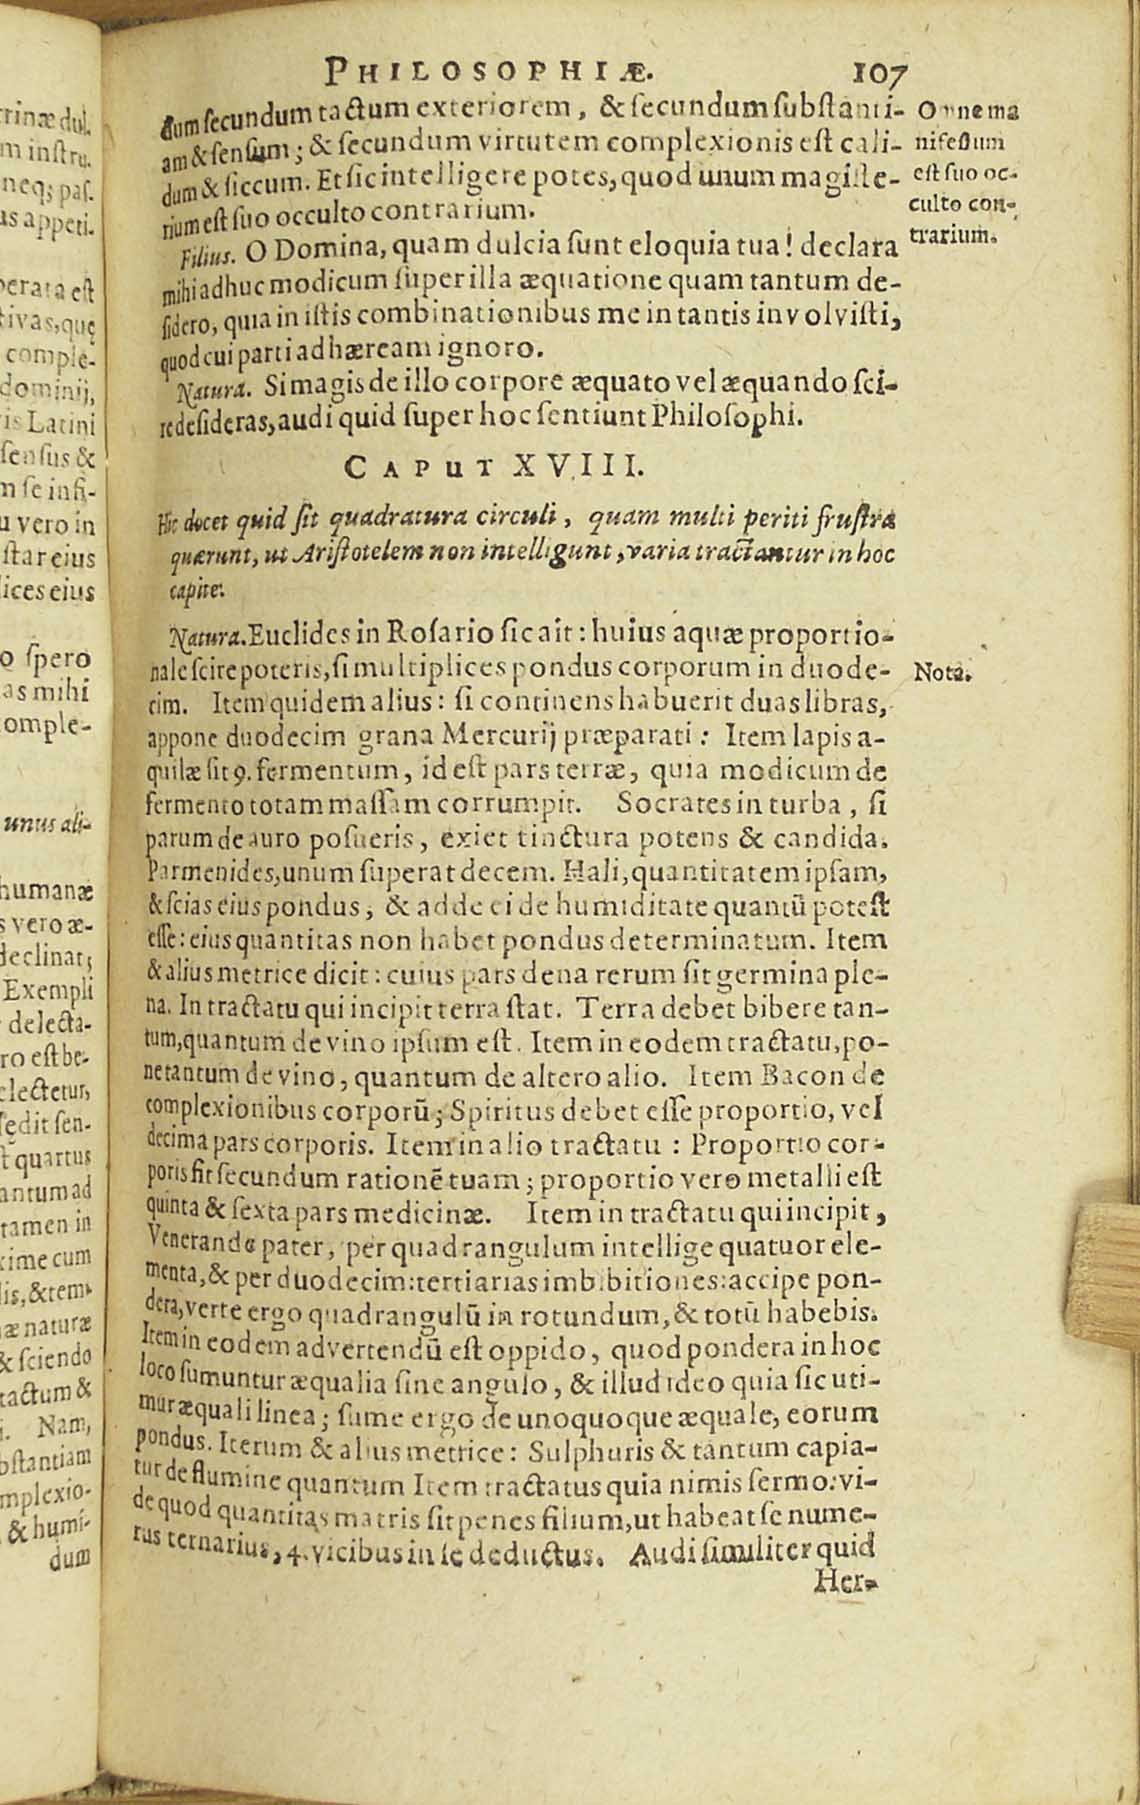 PHILOSOPHIÆ. 107
dum secundum tactum exteriorem, & secundum substanti-
am & sensum; & secundum virtutem complexionis est cali-
dum & siccum. Et sic intelligere potes, quod unum magiste-
rium est suo occulto contrarium.
Omne ma
nifestum
est suo oc-
culto con-
trarium.
Filius. O Domina, quam dulcia sunt eloquia tua! declara
mihi adhuc modicum super illa æquatione quam tantum de-
sidero, quia in istis combinationibus me in tantis involvisti,
quod cui parti adhæream ignoro.
Natura. Si magis de illo corpore æquato vel æquando sci-
re desideras, audi quid super hoc sentiunt Philosophi.
CAPUT XVIII.
Hic docet quid sit quadratura circuli, quam multi periti frustra
quærunt, ut Aristotelem non intelligunt, varia tractantur in hoc
capite.
Natura. Euclides in Rosario sic ait: huius aquæ proportio-
nale scire poteris, si multiplices pondus corporum in duode-
cim. Item quidem alius: si continens habuerit duas libras,
Nota.
appone duodecim grana Mercurij præparati: Item lapis a-
quilæ sit 9. fermentum, id est pars terræ, quia modicum de
fermento totam massam corrumpit. Socrates in turba, si
parum de auro posueris, exiet tinctura potens & candida.
Parmenides, unum superat decem. Hali, quantitatem ipsam,
& scias eius pondus, & adde ei de humiditate quantū potest
esse: eius quantitas non habet pondus determinatum. Item
& alius metrice dicit: cuius pars dena rerum sit germina ple-
na. In tractatu qui incipit terra stat. Terra debet bibere tan-
tum, quantum de vino ipsum est. Item in eodem tractatu, po-
ne tantum de vino, quantum de altero alio. Item Bacon de
complexionibus corporū; Spiritus debet esse proportio, vel
decima pars corporis. Item in alio tractatu: Proportio cor-
poris fit secundum rationē tuam; proportio vero metalli est
quinta & sexta pars medicinæ. Item in tractatu qui incipit,
Venerande pater, per quadrangulum intellige quatuor ele-
menta, & per duodecim: tertiarias imbibitiones: accipe pon-
dera, verte ergo quadrangulū in rotundum, & totū habebis.
Item in eodem advertendū est oppido, quod pondera in hoc
loco sumuntur æqualia sine angulo, & illud ideo quia sic uti-
mur æquali linea; sume ergo de unoquoque æquale, eorum
pondus. Iterum & alius metrice: Sulphuris & tantum capia-
tur de flumine quantum Item tractatus quia nimis sermo: vi-
de quod quantitas matris sit penes filium, ut habeat se nume-
rus ternarius, 4. vicibus in se deductus. Audi similiter quid
Her-